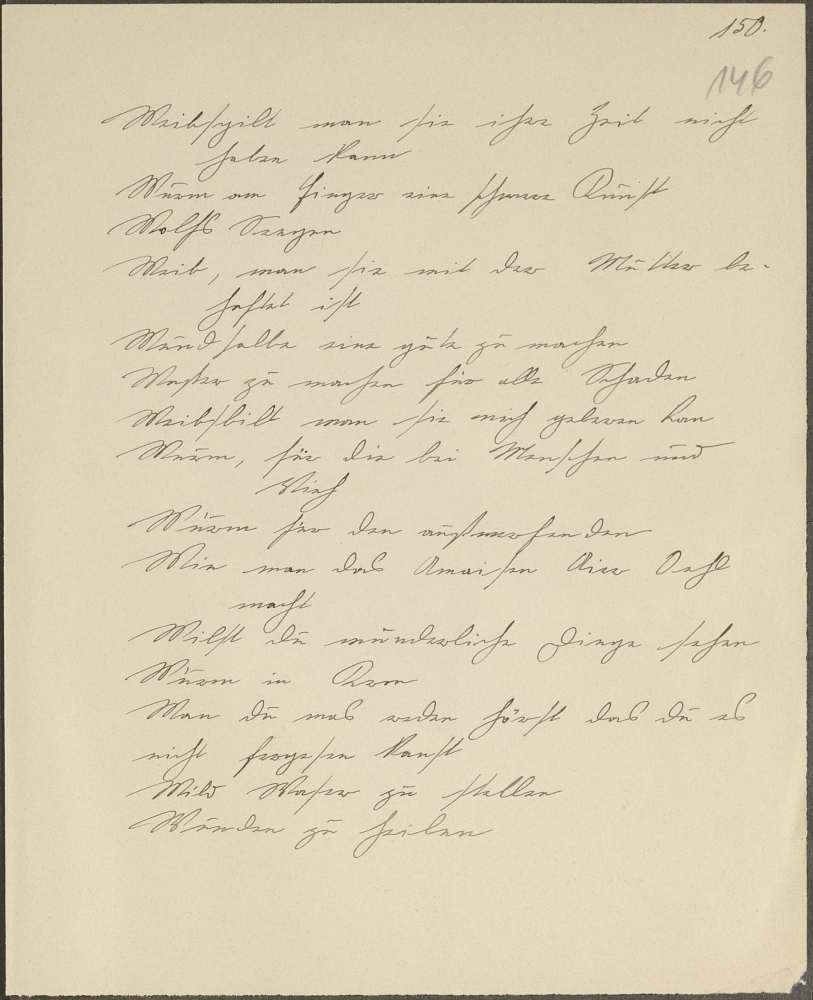 150.
146
Weibsbilt wan sie ihre Zeit nicht
haben kann
Wurm am Finger eine schwere Kunst
Wolfs Seegen
Weib, wan sie mit der Mutter be-
haftet ist
Wund salbe eine gute zu machen
Waser zu machen für alle Schaden
Weibsbilt wan sie nich geberen kan
Wurm, für die bei Menschen und
Vieh
Würm für den auswerfenden
Wie man das Amaisen Aier Oehl
macht
Wilst du wunderliche Dinge sehen
Würm in
Wan du was reden hörst das du es
nicht fergesen kanst
Wild Waser zu stellen
Wunden zu heilen